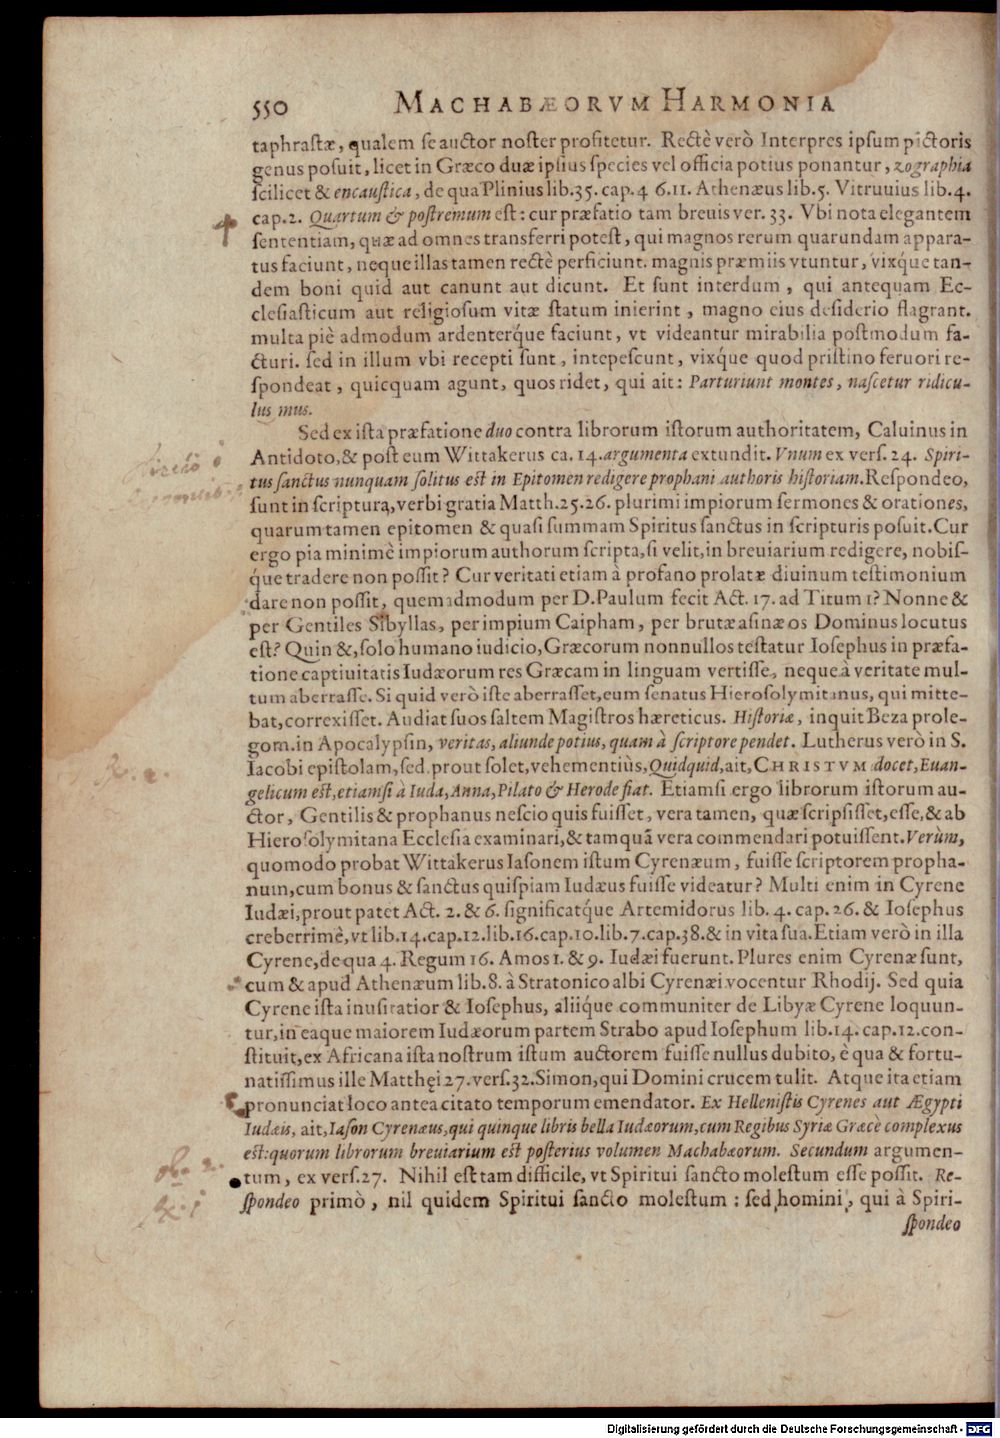 550 MACHABÆORVM HARMONIA
taphrastæ, qualem se auctor noster profitetur. Rectè verò Interpres ipsum pictoris
genus posuit, licet in Græco duæ ipsius species vel officia potius ponantur, zographia
scilicet & encaustica, de qua Plinius lib. 35. cap. 4 6. 11. Athenæus lib. 5. Vitruuius lib. 4.
cap. 2. Quartum & postremum est: cur præfatio tam breuis ver. 33. Vbi nota elegantem
sententiam, quæ ad omnes transferri potest, qui magnos rerum quarundam appara-
tus faciunt, neque illas tamen rectè perficiunt. magnis præmiis vtuntur, vixq́ue tan-
dem boni quid aut canunt aut dicunt. Et sunt interdum, qui antequam Ec-
clesiasticum aut religiosum vitæ statum inierint, magno eius desiderio flagrant.
multa piè admodum ardenterq́ue faciunt, vt videantur mirabilia postmodum fa-
cturi. sed in illum vbi recepti sunt, intepescunt, vixq́ue quod pristino feruori re-
spondeat, quicquam agunt, quos ridet, qui ait: Parturiunt montes, nascetur ridicu-
lus mus.
Sed ex ista præfatione duo contra librorum istorum authoritatem, Caluinus in
Antidoto, & post eum Wittakerus ca. 14. argumenta extundit. Vnum ex vers. 24. Spiri-
tus sanctus nunquam solitus est in Epitomen redigere prophani authoris historiam. Respondeo,
sunt in scriptura, verbi gratia Matth. 25. 26. plurimi impiorum sermones & orationes,
quarum tamen epitomen & quasi summam Spiritus sanctus in scripturis posuit. Cur
ergo pia minimè impiorum authorum scripta, si velit, in breuiarium redigere, nobis-
q́ue tradere non possit? Cur veritati etiam à profano prolatæ diuinum testimonium
dare non possit, quemadmodum per D. Paulum fecit Act. 17. ad Titum 1? Nonne &
per Gentiles Sibyllas, per impium Caipham, per brutæ asinæ os Dominus locutus
est? Quin &, solo humano iudicio, Græcorum nonnullos testatur Iosephus in præfa-
tione captiuitatis Iudæorum res Græcam in linguam vertisse, neque à veritate mul-
tum aberrasse. Si quid verò iste aberrasset, eum senatus Hierosolymitanus, qui mitte-
bat, correxisset. Audiat suos saltem Magistros hæreticus. Historiæ, inquit Beza prole-
gom. in Apocalypsin, veritas, aliunde potius, quam à scriptore pendet. Lutherus verò in S.
Iacobi epistolam, sed. prout solet, vehementiùs, Quidquid, ait, CHRISTVM docet, Euan-
gelicum est, etiamsi à Iuda, Anna, Pilato & Herode fiat. Etiamsi ergo librorum istorum au-
ctor, Gentilis & prophanus nescio quis fuisset, vera tamen, quæ scripsisset, esse, & ab
Hierosolymitana Ecclesia examinari, & tamquã vera commendari potuissent. Verùm,
quomodo probat Wittakerus Iasonem istum Cyrenæum, fuisse scriptorem propha-
num, cum bonus & sanctus quispiam Iudæus fuisse videatur? Multi enim in Cyrene
Iudæi, prout patet Act. 2. & 6. significatq́ue Artemidorus lib. 4. cap. 26. & Iosephus
creberrimè, vt lib. 14. cap. 12. lib. 16. cap. 10. lib. 7. cap. 38. & in vita sua. Etiam verò in illa
Cyrene, de qua 4. Regum 16. Amos 1. & 9. Iudæi fuerunt. Plures enim Cyrenæ sunt,
cum & apud Athenæum lib. 8. à Stratonico albi Cyrenæi vocentur Rhodij. Sed quia
Cyrene ista inusitatior & Iosephus, aliiq́ue communiter de Libyæ Cyrene loquun-
tur, in eaque maiorem Iudæorum partem Strabo apud Iosephum lib. 14. cap. 12. con-
stituit, ex Africana ista nostrum istum auctorem fuisse nullus dubito, è qua & fortu-
natissimus ille Matthęi 27. vers. 32. Simon, qui Domini crucem tulit. Atque ita etiam
pronunciat loco antea citato temporum emendator. Ex Hellenistis Cyrenes aut Ægypti
Iudæis, ait, Iason Cyrenæus, qui quinque libris bella Iudæorum, cum Regibus Syriæ Græcè complexus
est: quorum librorum breuiarium est posterius volumen Machabæorum. Secundum argumen-
tum, ex vers. 27. Nihil est tam difficile, vt Spiritui sancto molestum esse possit. Re-
spondeo primò, nil quidem Spiritui sancto molestum: sed homini, qui à Spiri-
spondeo
Digitalisierung gefördert durch die Deutsche Forschungsgemeinschaft - DFG